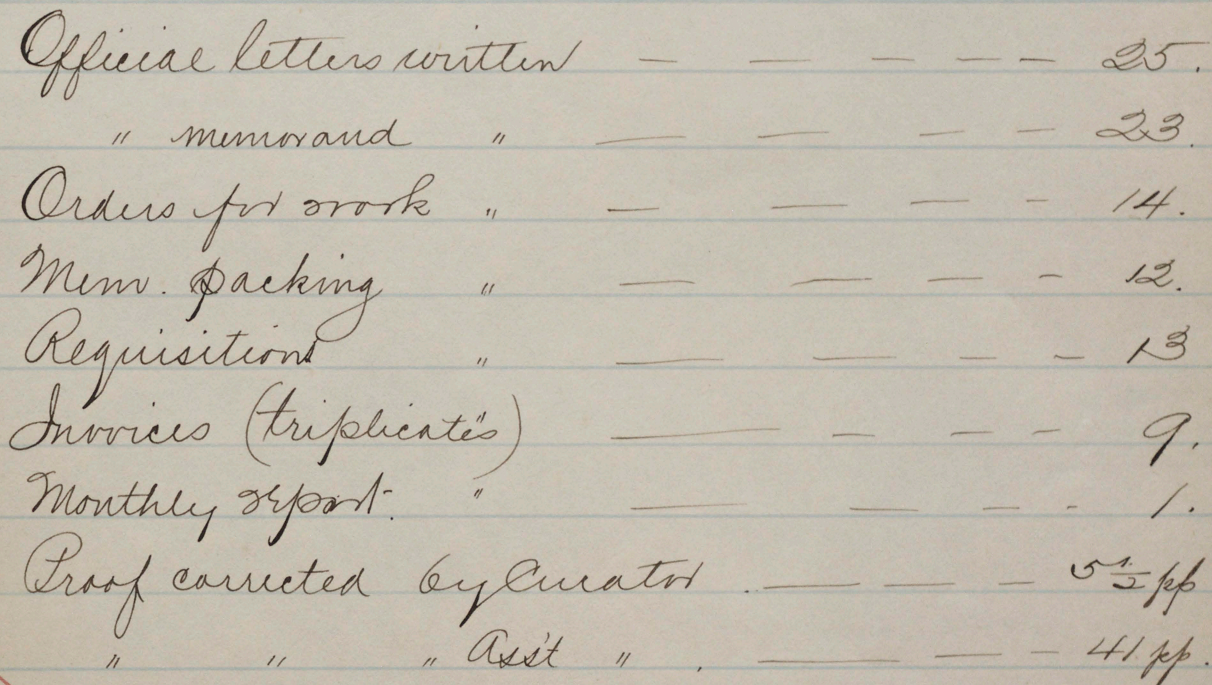 Official letters written — — — — — 25.
" memorand " — — — — 23.
Orders for work " — — — - 14.
Mem. packing " — — — - 12.
Requisitions " — — — - 13
Invoices (triplicates) " — — — - 9.
Monthly report. " — — — - 1.
Proof corrected by Curator . — — — 5 1/2 pp
" " " Ass't " . — — — 41 pp.